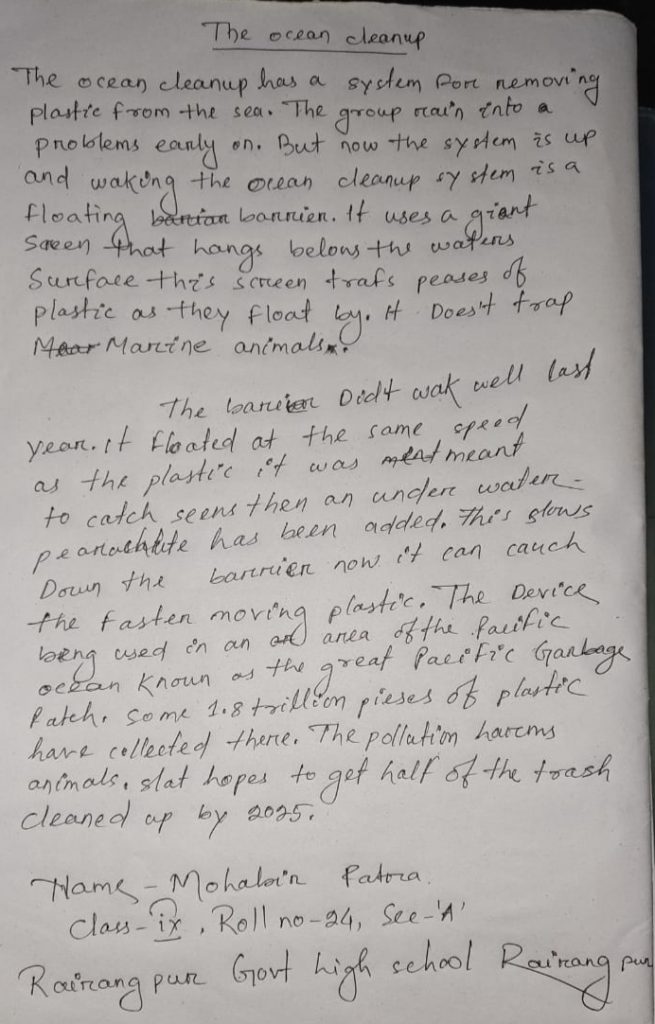 The ocean cleanup
The ocean cleanup has a system for removing
plastic from the sea. The group rain into a
problems early on. But now the system is up
and waking the ocean cleanup system is a
floating barrian barrier. It uses a giant
Sceen that hangs belows the waters
Surface this screen trafs peases of
plastic as they float by. It Does't trap
Maar Marine animals.
The barrier Did't wak well last
year. it floated at the same speed
as the plastic it was meat meant
to catch seens then an under water-
pearachute has been added. This slows
Down the barrier now it can cauch
the faster moving plastic. The Device
being used in an are area of the Pacific
ocean Known as the great Pacific Garbage
Patch. Some 1.8 trillion pieses of plastic
have collected there. The pollution harms
animals. slat hopes to get half of the trash
cleaned up by 2025.
Name - Mohabir Patra.
Class - ix, Roll no - 24, Sec - 'A'
Rairangpur Govt high school Rairangpur